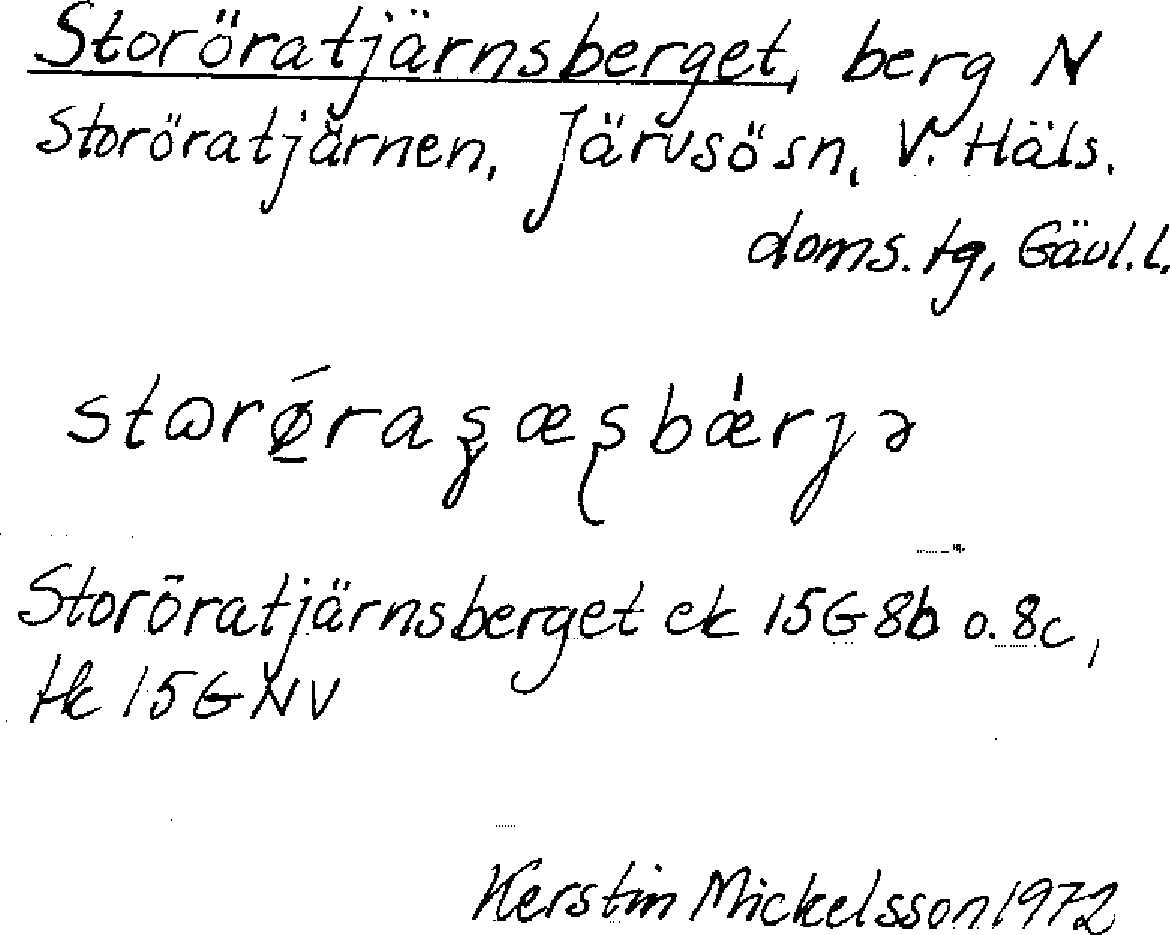 Storöratjärnsberget, berg N
Storöratjärnen, Järvsösn, V. Häls.
doms. tg, Gävl. l.
Storöratjärnsberget ek 15G8b o. 8c,
Hk 15GNV
Kerstin Mickelsson 1972